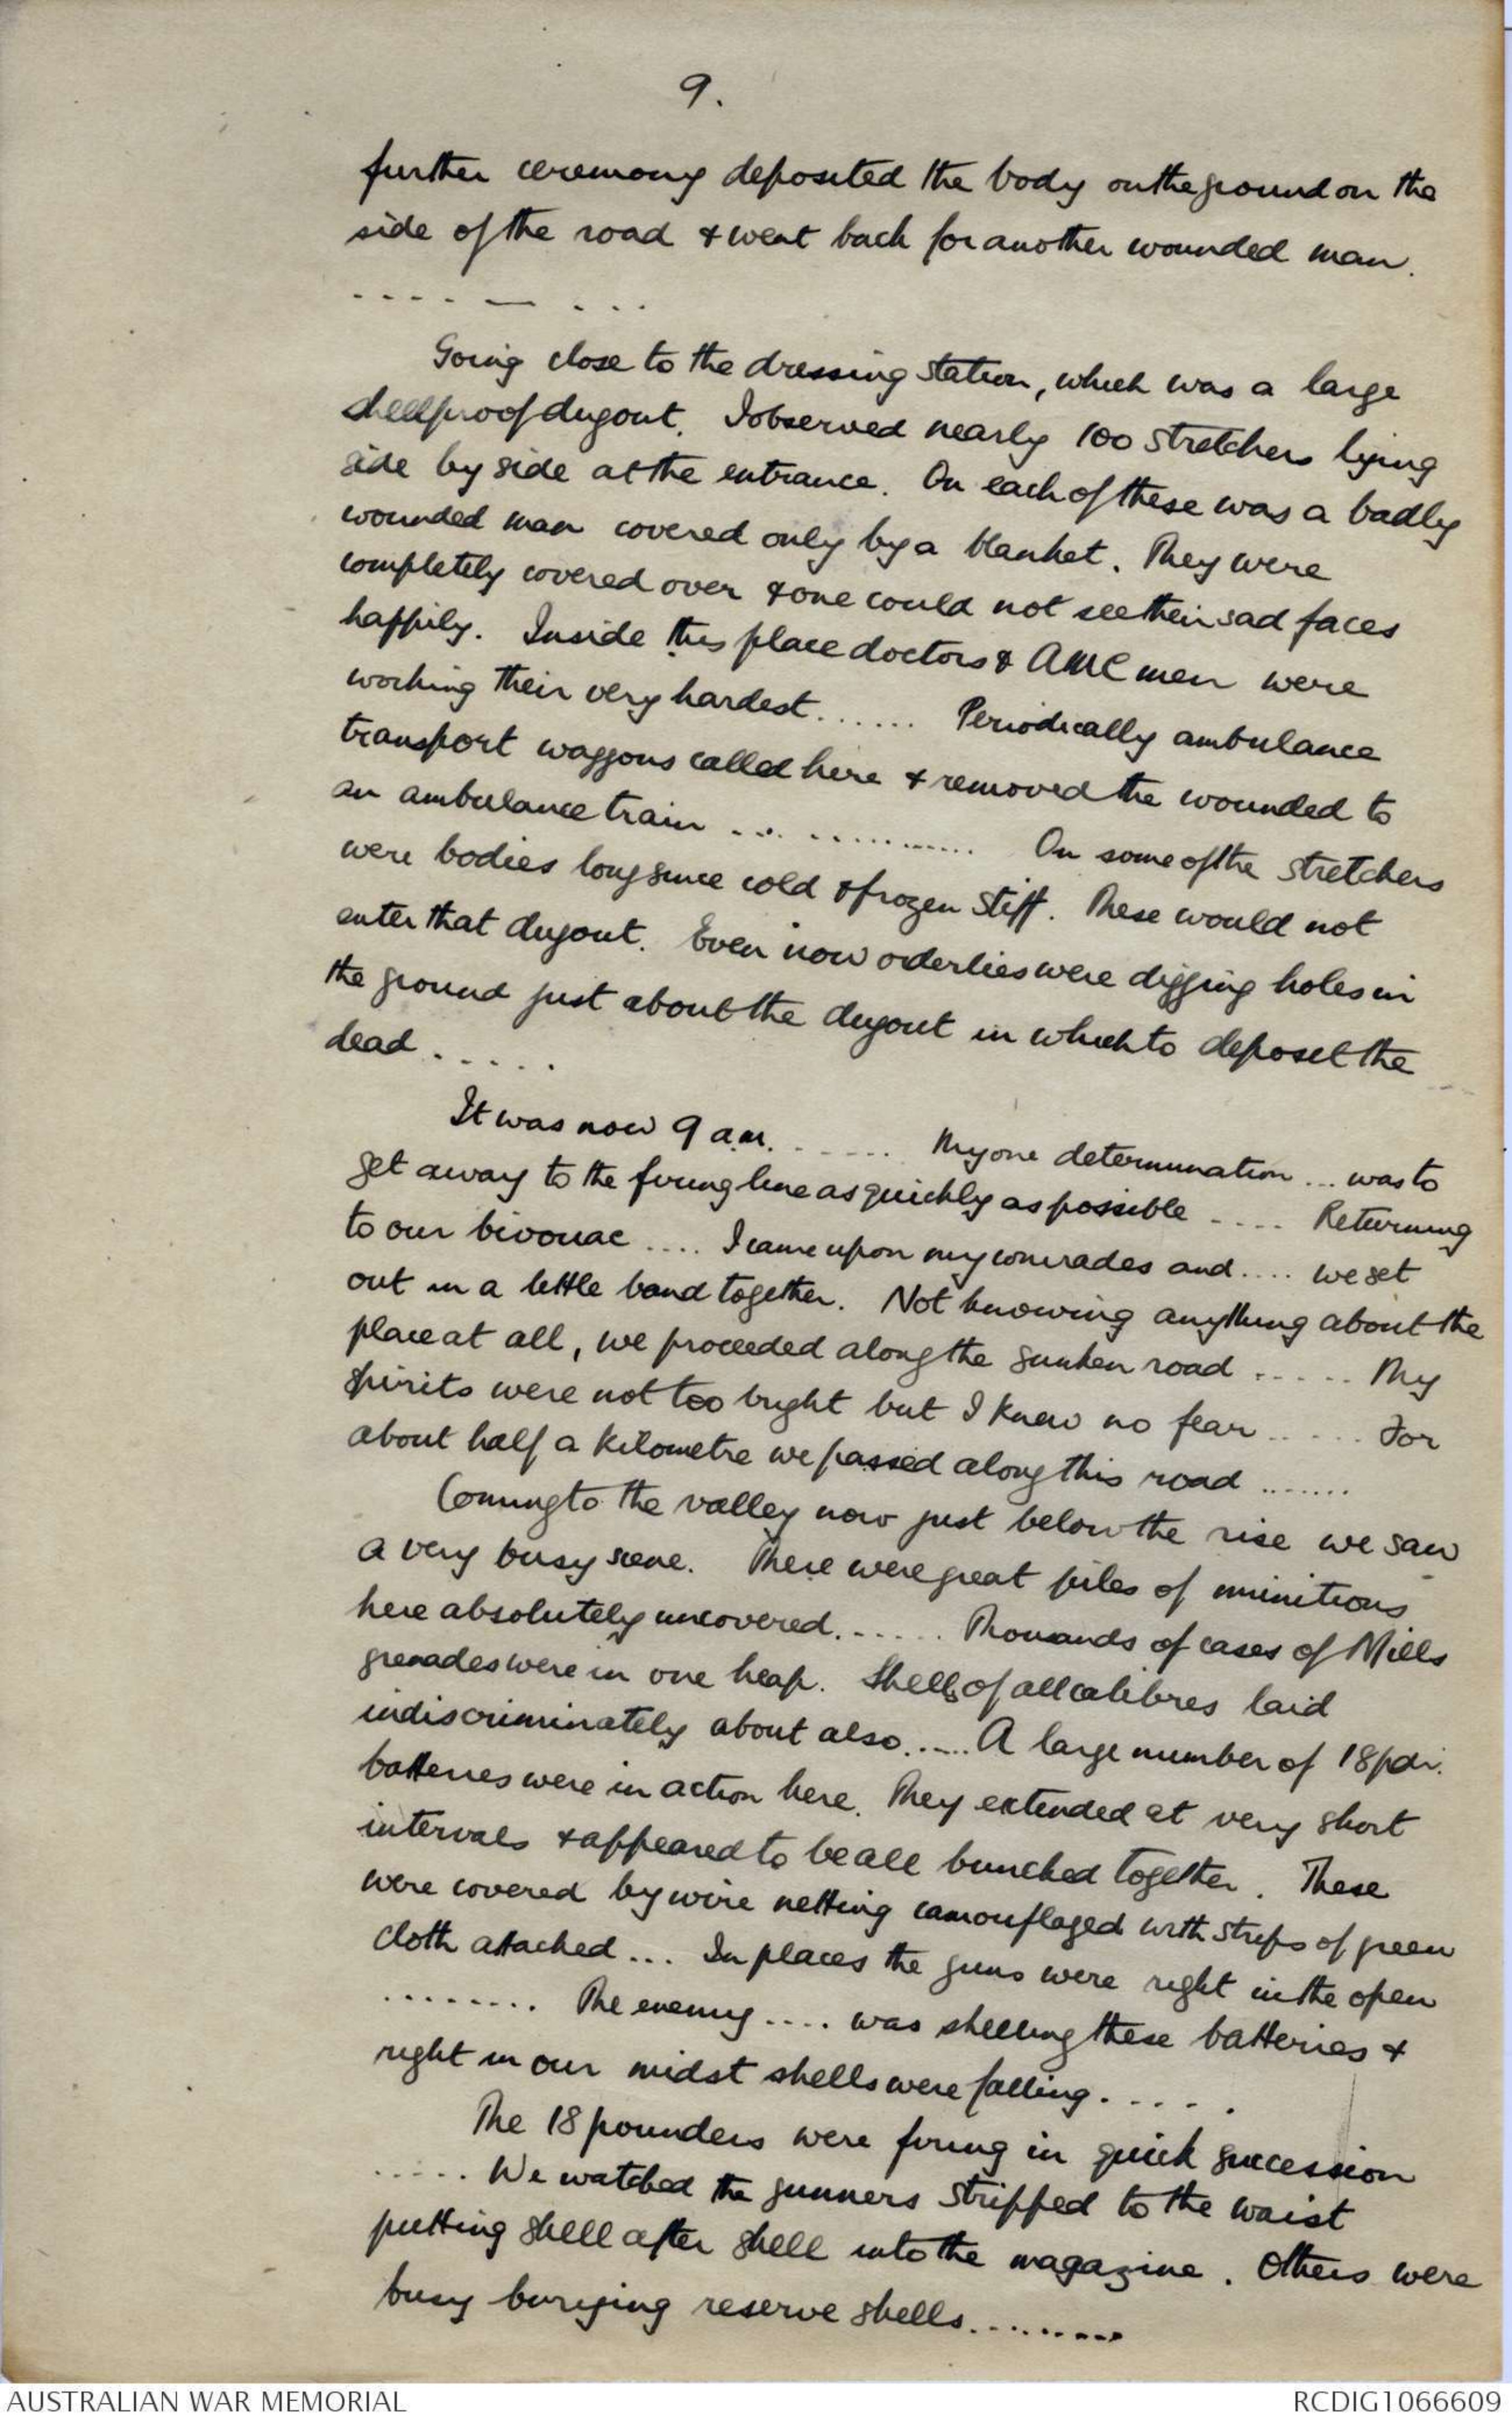 9.
further ceremony deposited the body on the ground on the
side of the road & went back for another wounded man.
. . . . — . . .
Going close to the dressing station, which was a large
shellproof dugout. I observed nearly 100 stretchers lying
side by side at the entrance. On each of these was a badly
wounded man covered only by a blanket. They were
completely covered over & one could not see their sad faces
happily. Inside this place doctors & AMC men were
working their very hardest....... Periodically ambulance
transport waggons called here & removed the wounded to
an ambulance train .............. On some of the stretchers
were bodies long since cold & frozen stiff. These would not
enter that dugout. Even now orderlies were digging holes in
the ground just about the dugout in which to deposit the
dead.....
It was now 9 a.m. ....... My one determination ... was to
get away to the firing line as quickly as possible ..... Returning
to our bivouac .... I came upon my comrades and .... we set
out in a little band together. Not knowing anything about the
place at all, we proceeded along the sunken road ...... My
spirits were not too bright but I knew no fear ...... For
about half a kilometre we passed along this road .......
Coming to the valley now just below the rise we saw
a very busy scene. There were great piles of munitions
here absolutely uncovered. ...... Thousands of cases of Mills
grenades were in one heap. Shells of all calibres laid
indiscriminately about also...... A large number of 18pdr.
batteries were in action here. They extended at very short
intervals & appeared to be all bunched together. These
were covered by wire netting camouflaged with strips of green
cloth attached... In places the guns were right in the open
........ The enemy .... was shelling these batteries &
right in our midst shells were falling......
The 18 pounders were firing in quick succession
..... We watched the gunners stripped to the waist
putting shell after shell into the magazine. Others were
busy burying reserve shells..........
AUSTRALIAN WAR MEMORIAL
RCDIG1066609